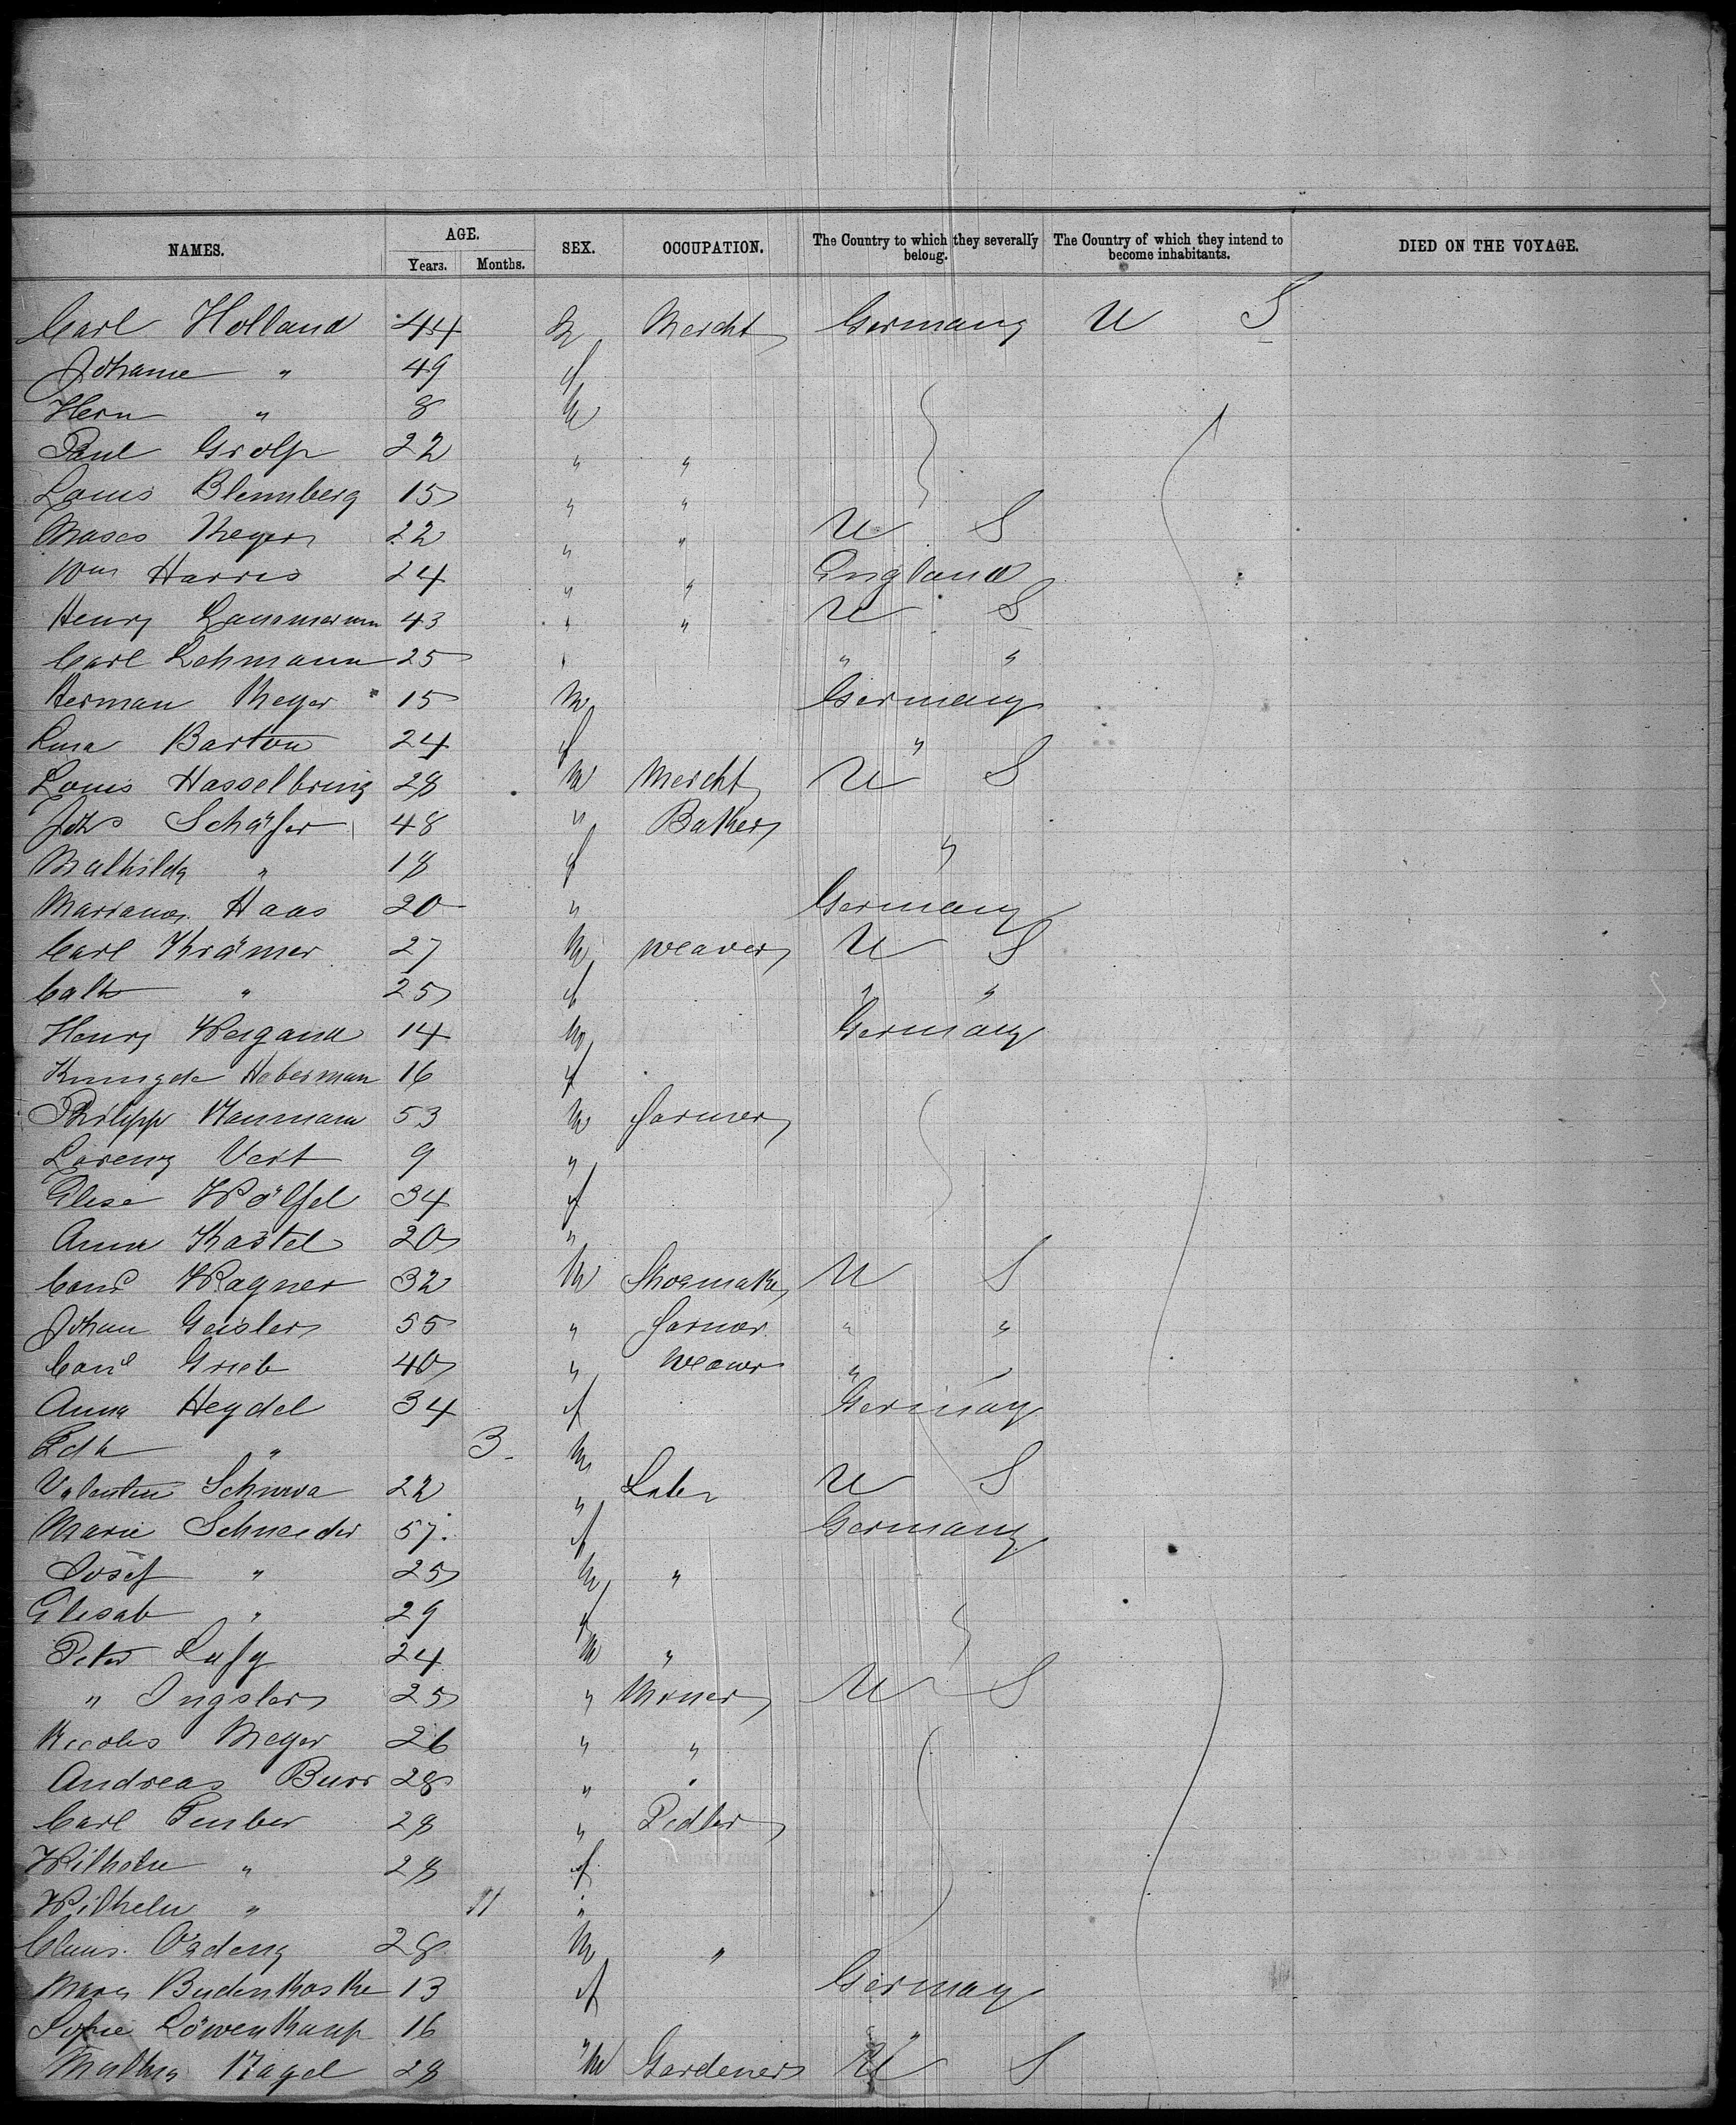 NAMES. AGE. SEX. OCCUPATION. The Country to which they severally belong. The Country of which they intend to become inhabitants. DIED ON THE VOYAGE.
Years. Months.
Carl Holland 44 M Mercht Germany U S
Johanne " 49 f
Hern " 8 M
Paul Grolp 22 " "
Louis Blemberg 15 " "
Meyer 22 " " U S
Wm Harris 24 " " England
Henry 43 " " U S
Carl Lehmann 25 " " "
Herman Meyer 15 M Germany
Lina Barton 24 f "
Louis Hasselbring 28 M Mercht U S
Johs Schäfer 48 " Baker
Mathilda " 18 f "
Mariana Haas 20 " Germany
Carl Krämer 27 M weaver U S
Cath " 25 f " "
Henry Weigand 14 M Germany
Haberman 16 f
Philipp Naumann 53 M farmer
Lorenz Veit 9 "
Elise Wölfel 34 f
Anna Kastel 20 "
Conr Wagner 32 M Shoemaker U S
Johan Geisler 55 " farmer " "
Grieb 40 " weaver "
Anna Heydel 34 f Germany
Edh " 3 M
Valentin 22 " Labr U S
Marie Schneider 57 f Germany
Josef " 25 M "
Elisab " 29 f
Peter 24 M "
" Ingsler 25 " Miner U S
Nicolas Meyer 26 " "
Andreas Burr 28 " "
Carl 28 " Pedler
Wilhelm " 28 f
Wilhelm " 11 "
Claus 28 M "
Mary Budenkoske 13 f Germany
Sofie Löwenkamp 16 " "
Mathis Nagel 28 M Gardener U S